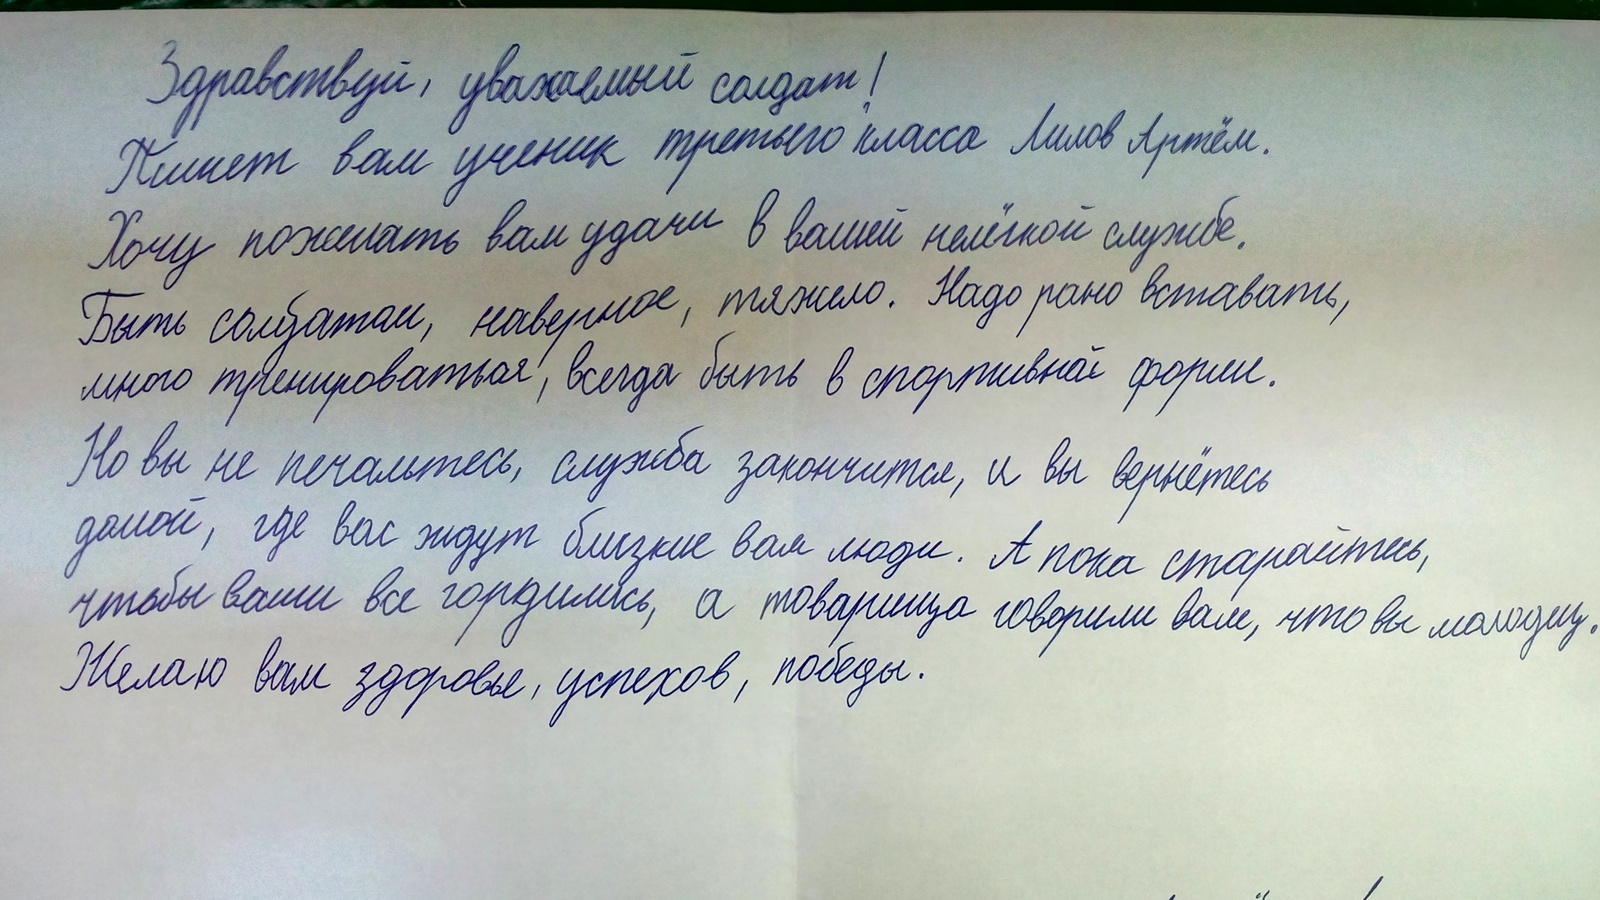 Здравствуй, уважаемый солдат!
Пишет вам ученик третьего "класса Лилов Артём.
Хочу пожелать вам удачи в вашей нелёгкой службе.
Быть солдатом, наверное, тяжело. Надо рано вставать,
много тренироваться, всегда быть в спортивной форме.
Но вы не печальтесь, служба закончится, и вы вернётесь
домой, где вас ждут близкие вам люди. А пока старайтесь,
чтобы вами все гордились, а товарища говорили вам, что вы молодец.
Желаю вам здоровье, успехов, победы.